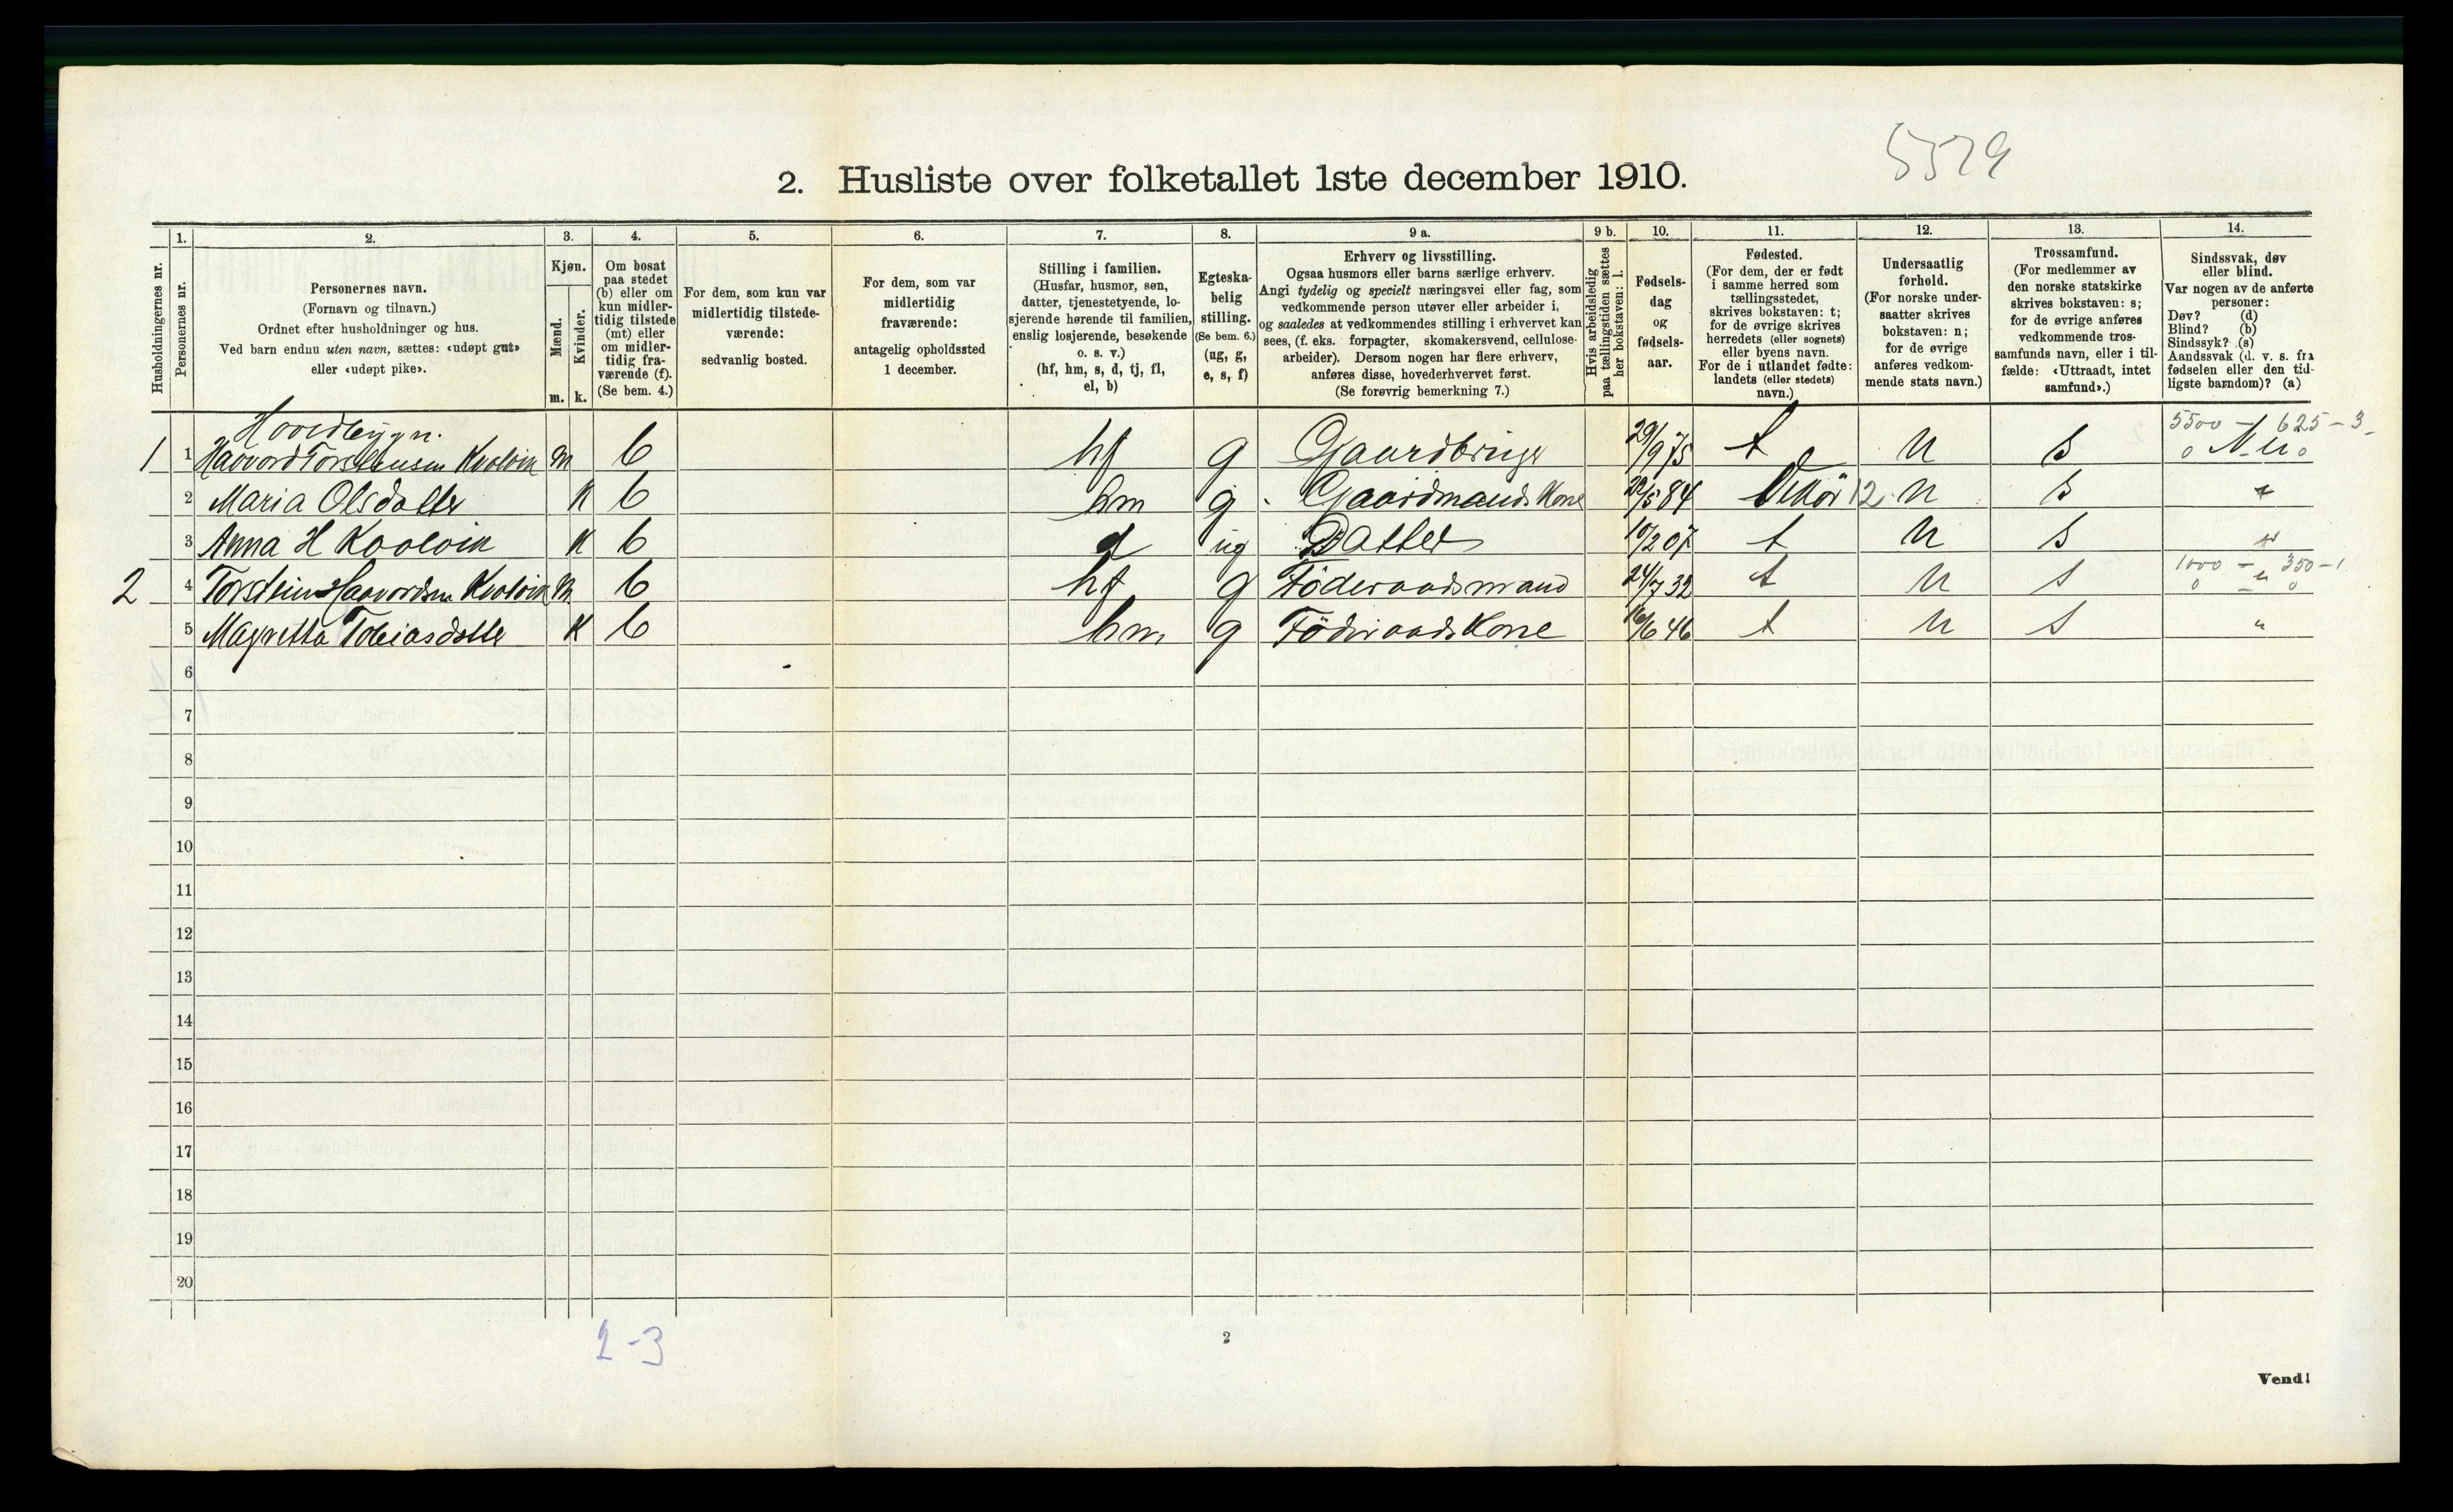 5529
2. Husliste over folketallet 1ste december 1910.
Husholdningernes nr.
1.
Personernes nr.
2.
Personernes navn.
(Fornavn og tilnavn.)
Ordnet efter husholdninger og hus.
Ved barn endnu uten navn, sættes: «udøpt gut»
eller «udøpt pike».
3.
Kjøn.
Mænd.
Kvinder.
m. k.
4.
Om bosat
paa stedet
(b) eller om
kun midler-
tidig tilstede
(mt) eller
om midler-
tidig fra-
værende (f).
(Se bem. 4.)
5.
For dem, som kun var
midlertidig tilstede-
værende:
sedvanlig bosted.
6.
For dem, som var
midlertidig
fraværende:
antagelig opholdssted
1 december.
7.
Stilling i familien.
(Husfar, husmor, søn,
datter, tjenestetyende, lo-
sjerende hørende til familien,
enslig losjerende, besøkende
o. s. v.)
(hf, hm, s, d, tj, fl,
el, b)
8.
Egteska-
belig
stilling.
(Se bem. 6.)
(ug, g,
e, s, f)
9 a.
Erhverv og livsstilling.
Ogsaa husmors eller barns særlige erhverv.
Angi tydelig og specielt næringsvei eller fag, som
vedkommende person utøver eller arbeider i,
og saaledes at vedkommendes stilling i erhvervet kan
sees, (f. eks. forpagter, skomakersvend, cellulose-
arbeider). Dersom nogen har flere erhverv,
anføres disse, hovederhvervet først.
(Se forøvrig bemerkning 7.)
9 b.
Hvis arbeidsledig
paa tællingstiden sættes
her bokstaven: l.
10.
Fødsels-
dag
og
fødsels-
aar.
11.
Fødested.
(For dem, der er født
i samme herred som
tællingsstedet,
skrives bokstaven: t;
for de øvrige skrives
herredets (eller sognets)
eller byens navn.
For de i utlandet fødte:
landets (eller stedets)
navn.)
12.
Undersaatlig
forhold.
(For norske under-
saatter skrives
bokstaven: n;
for de øvrige
anføres vedkom-
mende stats navn.)
13.
Trossamfund.
(For medlemmer av
den norske statskirke
skrives bokstaven: s;
for de øvrige anføres
vedkommende tros-
samfunds navn, eller i til-
fælde: «Uttraadt, intet
samfund».)
14.
Sindssvak, døv
eller blind.
Var nogen av de anførte
personer:
Døv? (d)
Blind? (b)
Sindssyk? (s)
Aandssvak (d. v. s. fra
fødselen eller den tid-
ligste barndom)? (a)
Hovedbygn. 5500 - 625 - 3
1 1 Haavord Torsteinsen Kvolvin m b hf g Gaardbruger 29/9 75 t n s
2 Maria Olsdatter k b hm g Gaardmands Kone 22/5 84 12 n s
3 Anna H Kvolvin k b d ug Datter 10/2 07 t n s
1000 - 350 - 1
2 4 Torstein Haavordsn Kvolvin m b hf g Föderaadsmand 24/7 32 t n s
5 Magretha Tobiasdatter k b hm g Föderaads Kone 16/6 46 t n s "
6
7
8
9
10
11
12
13
14
15
16
17
18
19
20
2-3
2
Vend!